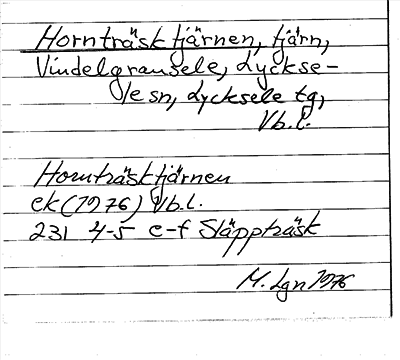 Hornträsktjärnen, tjärn,
Vindelgransele, Lyckse-
le sn, Lycksele tg,
Vb.l.
Hornträsktjärnen
ek (1976) Vb.l.
231 4-5 e-f Släppträsk
M. Lgn 1976